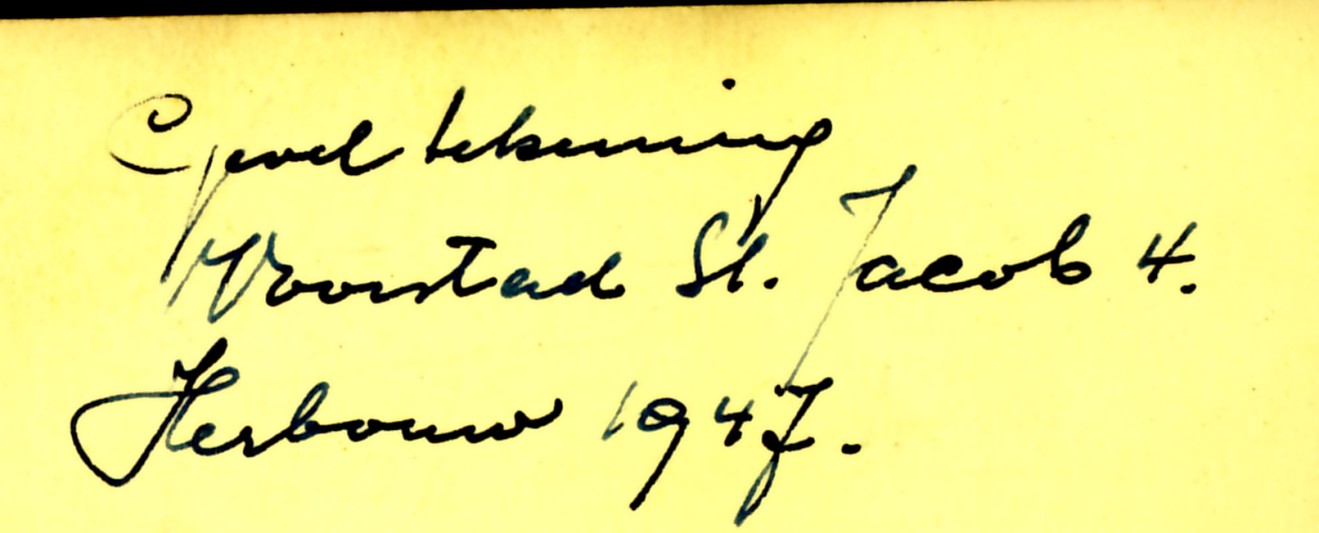 Gevel tekening
Voorstad St. Jacob 4.
Herbouw 1947.